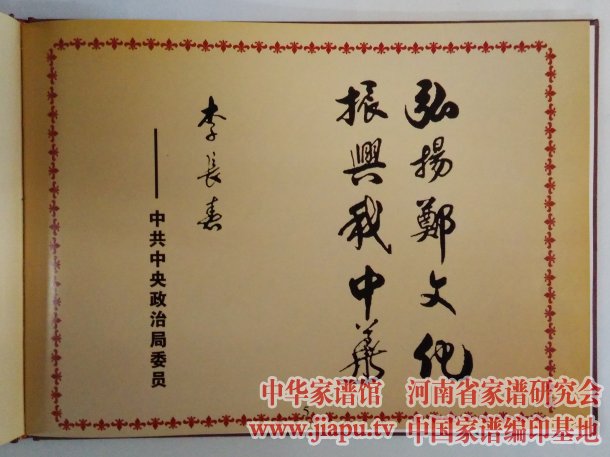 弘揚鄭文化
振興我中華
李長春
——中共中央政治局委员
中华家谱馆 河南省家谱研究会
www.jiapu.tv 中国家谱编印基地